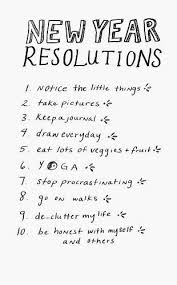 NEW YEAR
RESOLUTIONS
1. notice the little things
2. take pictures
3. keep a journal
4. draw everyday
5. eat lots of veggies + fruit
6. YOGA
7. stop procrastinating
8. go on walks
9. de-clutter my life
10. be honest with myself
and others